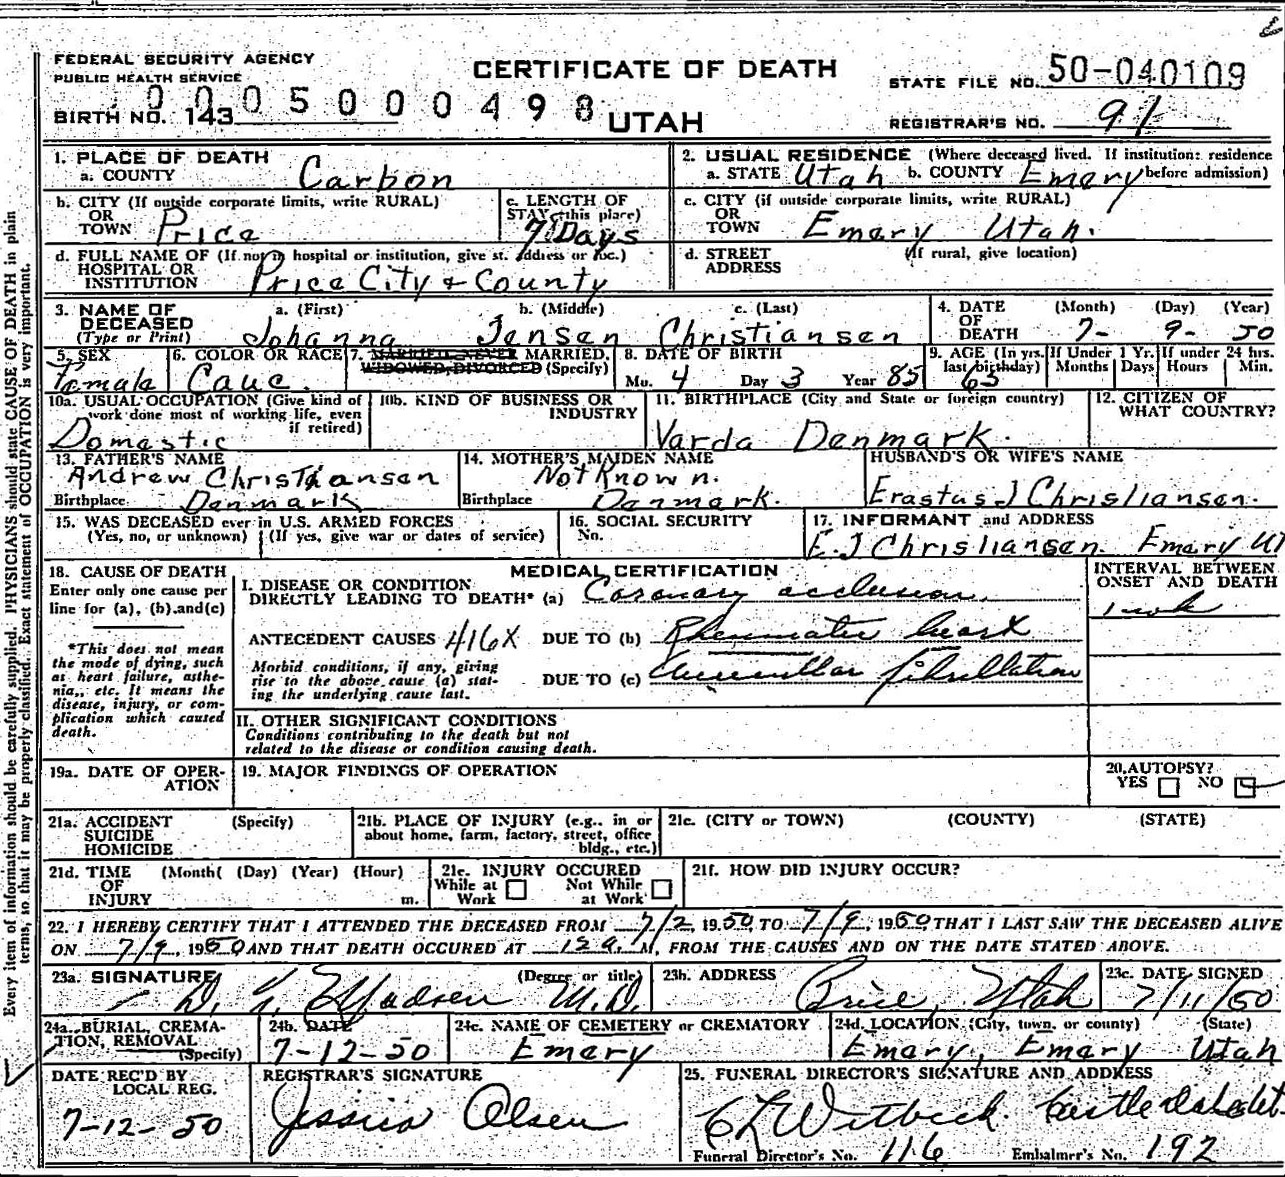 FEDERAL SECURITY AGENCY
PUBLIC HEALTH SERVICE
CERTIFICATE OF DEATH
STATE FILE NO. 50-040109
0005000498
BIRTH NO. 143
UTAH
REGISTRAR'S NO. 91
1. PLACE OF DEATH
a. COUNTY Carbon
2. USUAL RESIDENCE (Where deceased lived. If institution: residence
a. STATE Utah b. COUNTY Emery before admission)
b. CITY (If outside corporate limits, write RURAL)
OR
TOWN Price
c. LENGTH OF
STAY (this place)
7 Days
c. CITY (if outside corporate limits, write RURAL)
OR
TOWN Emery Utah.
d. FULL NAME OF (If not in hospital or institution, give st. address or loc.)
HOSPITAL OR
INSTITUTION Price City & County
d. STREET (If rural, give location)
ADDRESS
3. NAME OF a. (First) b. (Middle) c. (Last)
DECEASED
(Type or Print) Johanna Jensen Christiansen
4. DATE (Month) (Day) (Year)
OF
DEATH 7- 9- 50
5. SEX
Female
6. COLOR OR RACE
Cauc.
7. MARRIED, NEVER MARRIED,
WIDOWED, DIVORCED (Specify)
8. DATE OF BIRTH
Mo. 4 Day 3 Year 85
9. AGE (In yrs. last birthday) 65
If Under 1 Yr. Months Days
If under 24 hrs. Hours Min.
10a. USUAL OCCUPATION (Give kind of
work done most of working life, even
if retired)
Domestic
10b. KIND OF BUSINESS OR
INDUSTRY
11. BIRTHPLACE (City and State or foreign country)
Varda Denmark.
12. CITIZEN OF
WHAT COUNTRY?
13. FATHER'S NAME
Andrew Christiansen
Birthplace Denmark
14. MOTHER'S MAIDEN NAME
Not Known.
Birthplace Denmark.
HUSBAND'S OR WIFE'S NAME
Erastus J Christiansen.
15. WAS DECEASED ever in U.S. ARMED FORCES
(Yes, no, or unknown) (If yes, give war or dates of service)
16. SOCIAL SECURITY
No.
17. INFORMANT and ADDRESS
E. J Christiansen. Emery U
18. CAUSE OF DEATH
Enter only one cause per
line for (a), (b), and (c)
*This does not mean
the mode of dying, such
as heart failure, asthe-
nia, etc. It means the
disease, injury, or com-
plication which caused
death.
MEDICAL CERTIFICATION
I. DISEASE OR CONDITION
DIRECTLY LEADING TO DEATH* (a) Coronary occlusion
ANTECEDENT CAUSES 416X DUE TO (b) Rheumatic heart
Morbid conditions, if any, giving
rise to the above cause (a) stat-
ing the underlying cause last.
DUE TO (c) Auricular fibrillation
INTERVAL BETWEEN
ONSET AND DEATH
1 wk
II. OTHER SIGNIFICANT CONDITIONS
Conditions contributing to the death but not
related to the disease or condition causing death.
19a. DATE OF OPER-
ATION
19. MAJOR FINDINGS OF OPERATION
20. AUTOPSY?
YES NO
21a. ACCIDENT (Specify)
SUICIDE
HOMICIDE
21b. PLACE OF INJURY (e.g., in or
about home, farm, factory, street, office
bldg., etc.)
21c. (CITY or TOWN) (COUNTY) (STATE)
21d. TIME (Month( (Day) (Year) (Hour)
OF
INJURY m.
21e. INJURY OCCURED
While at Work Not While at Work
21f. HOW DID INJURY OCCUR?
22. I HEREBY CERTIFY THAT I ATTENDED THE DECEASED FROM 7/2, 1950 TO 7/9, 1950 THAT I LAST SAW THE DECEASED ALIVE
ON 7/9, 1950 AND THAT DEATH OCCURED AT 12 a. M, FROM THE CAUSES AND ON THE DATE STATED ABOVE.
23a. SIGNATURE (Degree or title)
Madsen M.D.
23b. ADDRESS
Price, Utah
23c. DATE SIGNED
7/11/50
24a. BURIAL, CREMA-
TION, REMOVAL
(Specify)
24b. DATE
7-12-50
24c. NAME OF CEMETERY or CREMATORY
Emery
24d. LOCATION (City, town, or county) (State)
Emery, Emery Utah
DATE REC'D BY
LOCAL REG.
7-12-50
REGISTRAR'S SIGNATURE
Jessica Olsen
25. FUNERAL DIRECTOR'S SIGNATURE AND ADDRESS
Funeral Director's No. 116 Embalmer's No. 192
Every item of information should be carefully supplied. PHYSICIANS should state CAUSE OF DEATH in plain
terms, so that it may be properly classified. Exact statement of OCCUPATION is very important.